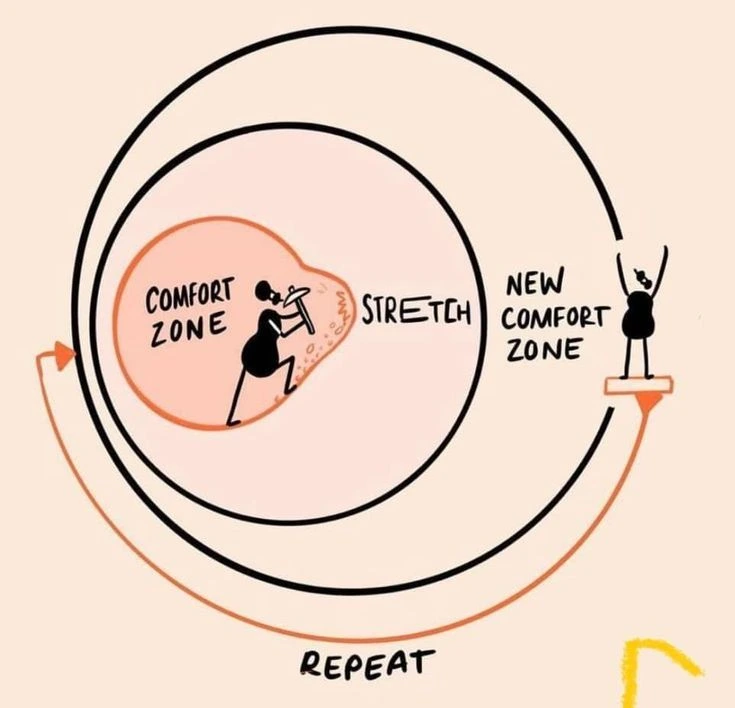 COMFORT
ZONE
STRETCH
NEW
COMFORT
ZONE
REPEAT